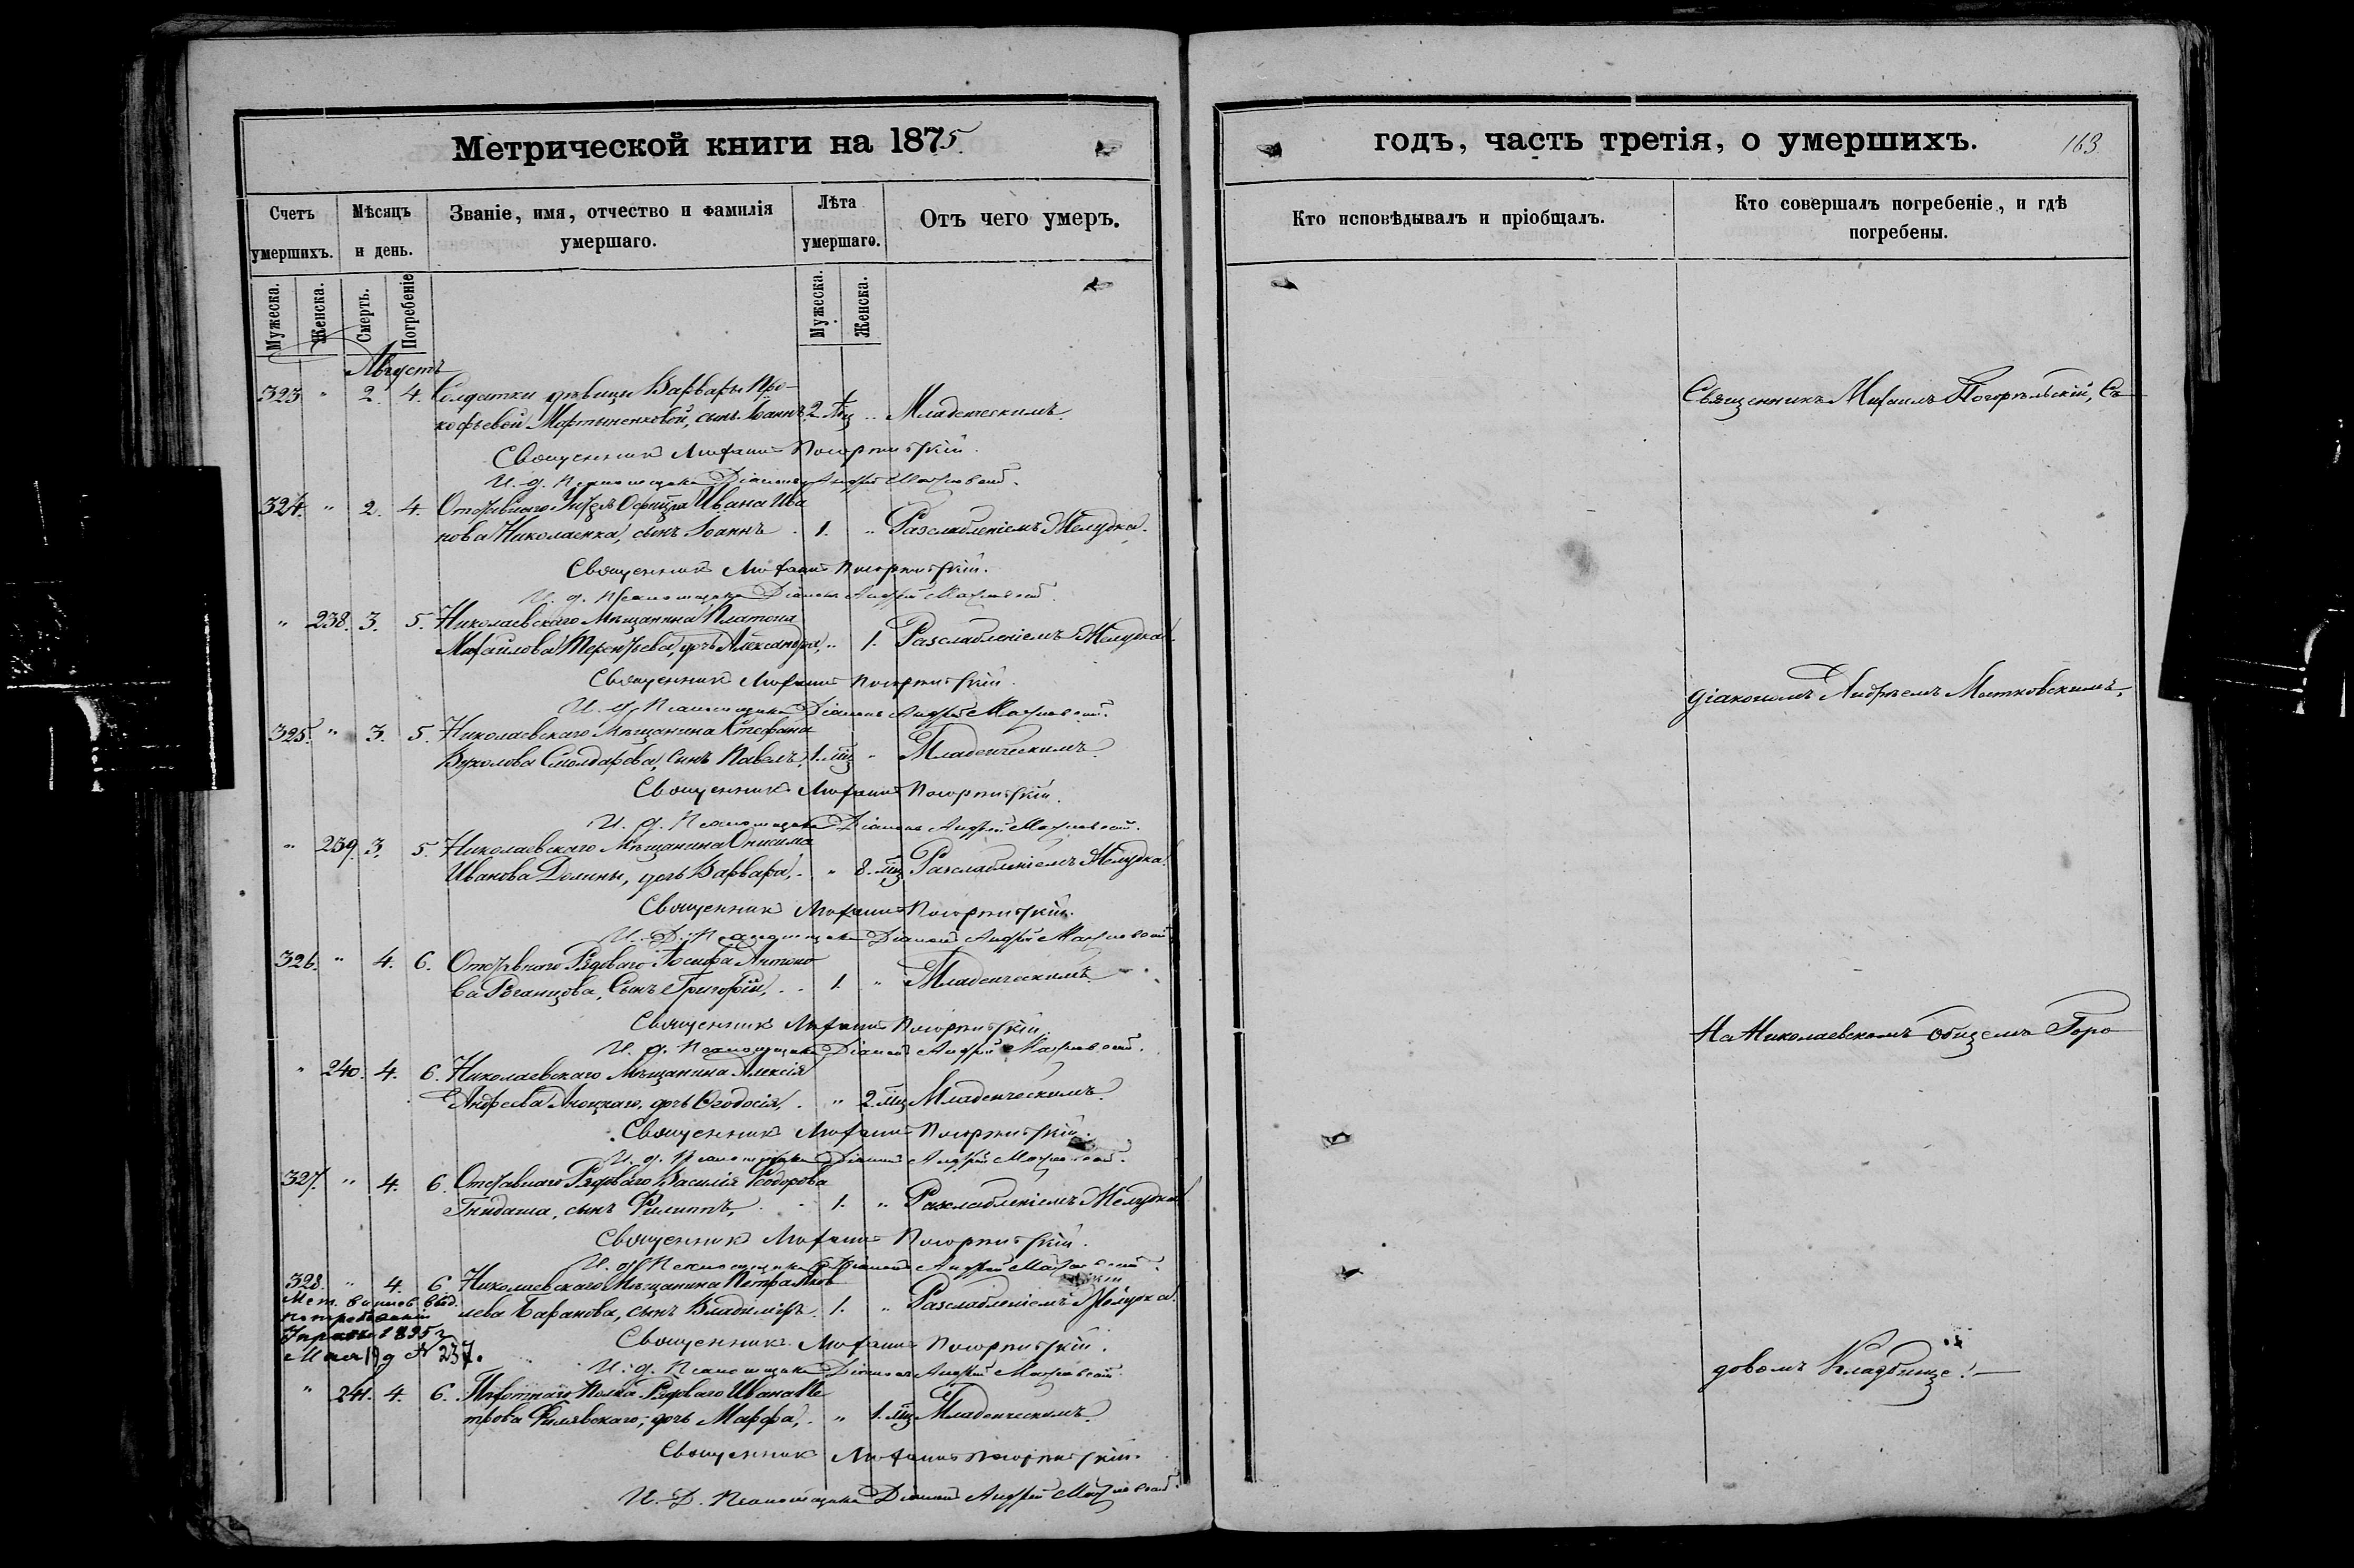 Метрической книги на 1875
Счетъ умершихъ.
Мѣсяцъ и день.
Званіе, имя, отчество и фамилія умершаго.
Лѣта умершаго.
Отъ чего умеръ.
Мужеска.
Женска.
Смерть.
Погребеніе
Мужеска.
Женска.
Августъ
323 " 2. 4. Солдатки дѣвицы Варвары Про-
кофьевой Мартыненковой, сынъ Іоаннъ, 2. " Младенческимъ.
Священникъ Михаилъ Погорѣльскій.
И. д. Псаломщика Діаконъ Андрей Матковскій.
324. " 2. 4. Отставнаго Унтеръ Офицера Ивана Ива
нова Николаенка, сынъ Іоаннъ 1. " Разслабленіемъ Желудка.
Священникъ Михаилъ Погорѣльскій.
И. д. Псаломщика Діаконъ Андрей Матковскій.
" 238. 3. 5. Николаевскаго Мѣщанина Платона
Михайлова Терентьева, дочь Александра, " 1. Разслабленіемъ Желудка.
Священникъ Михаилъ Погорѣльскій.
И. д. Псаломщика Діаконъ Андрей Матковскій.
325. " 3. 5. Николаевскаго Мѣщанина Стефана
Вуколова Смолдарова, Сынъ Павелъ, 1. мц " Младенческимъ.
Священникъ Михаилъ Погорѣльскій.
И. д. Псаломщика Діаконъ Андрей Матковскій.
" 239. 3. 5. Николаевскаго Мѣщанина Онисима
Иванова Долины, дочь Варвара, " 8. мц Разслабленіемъ Желудка.
Священникъ Михаилъ Погорѣльскій.
И. Д. Псаломщика Діаконъ Андрей Матковскій
326. " 4. 6. Отставнаго Рядоваго Іосифа Антоно
ва Сынъ Григорій, 1. " Младенческимъ.
Священникъ Михаилъ Погорѣльскій.
И. д. Псаломщика Діаконъ Андрей Матковскій.
" 240. 4. 6. Николаевскаго Мѣщанина Алексія
Андреева дочь Ѳеодосія, " 2. мц Младенческимъ.
Священникъ Михаилъ Погорѣльскій.
И. д. Псаломщика Діаконъ Андрей Матковскій.
327. " 4. 6. Отставнаго Рядоваго Василія Ѳеодорова
Гнидаша, сынъ Филиппъ, 1. " Разслабленіемъ Желудка.
Священникъ Михаилъ Погорѣльскій.
И. д. Псаломщика Діаконъ Андрей Матковскій.
328. " 4. 6. Николаевскаго Мѣщанина Петра Яков
лева Баранова, сынъ Владиміръ 1. " Разслабленіемъ Желудка.
Мет. выд.
по требованію
1895 г.
Мая 19 д № 237.
Священникъ Михаилъ Погорѣльскій.
И. д. Псаломщика Діаконъ Андрей Матковскій.
" 241. 4. 6. Пѣхотнаго Полка Рядоваго Ивана Пе
трова Филявскаго, дочь Марфа, " 1. мц Младенческимъ.
Священникъ Михаилъ Погорѣльскій.
И. Д. Псаломщика Діаконъ Андрей Матковскій.
годъ, часть третія, о умершихъ.
163.
Кто исповѣдывалъ и пріобщалъ.
Кто совершалъ погребеніе, и гдѣ погребены.
Священникъ Михаилъ Погорѣльскій, Съ
діакономъ Андреемъ Матковскимъ,
На Николаевскомъ Общемъ Горо
довомъ Кладбище.